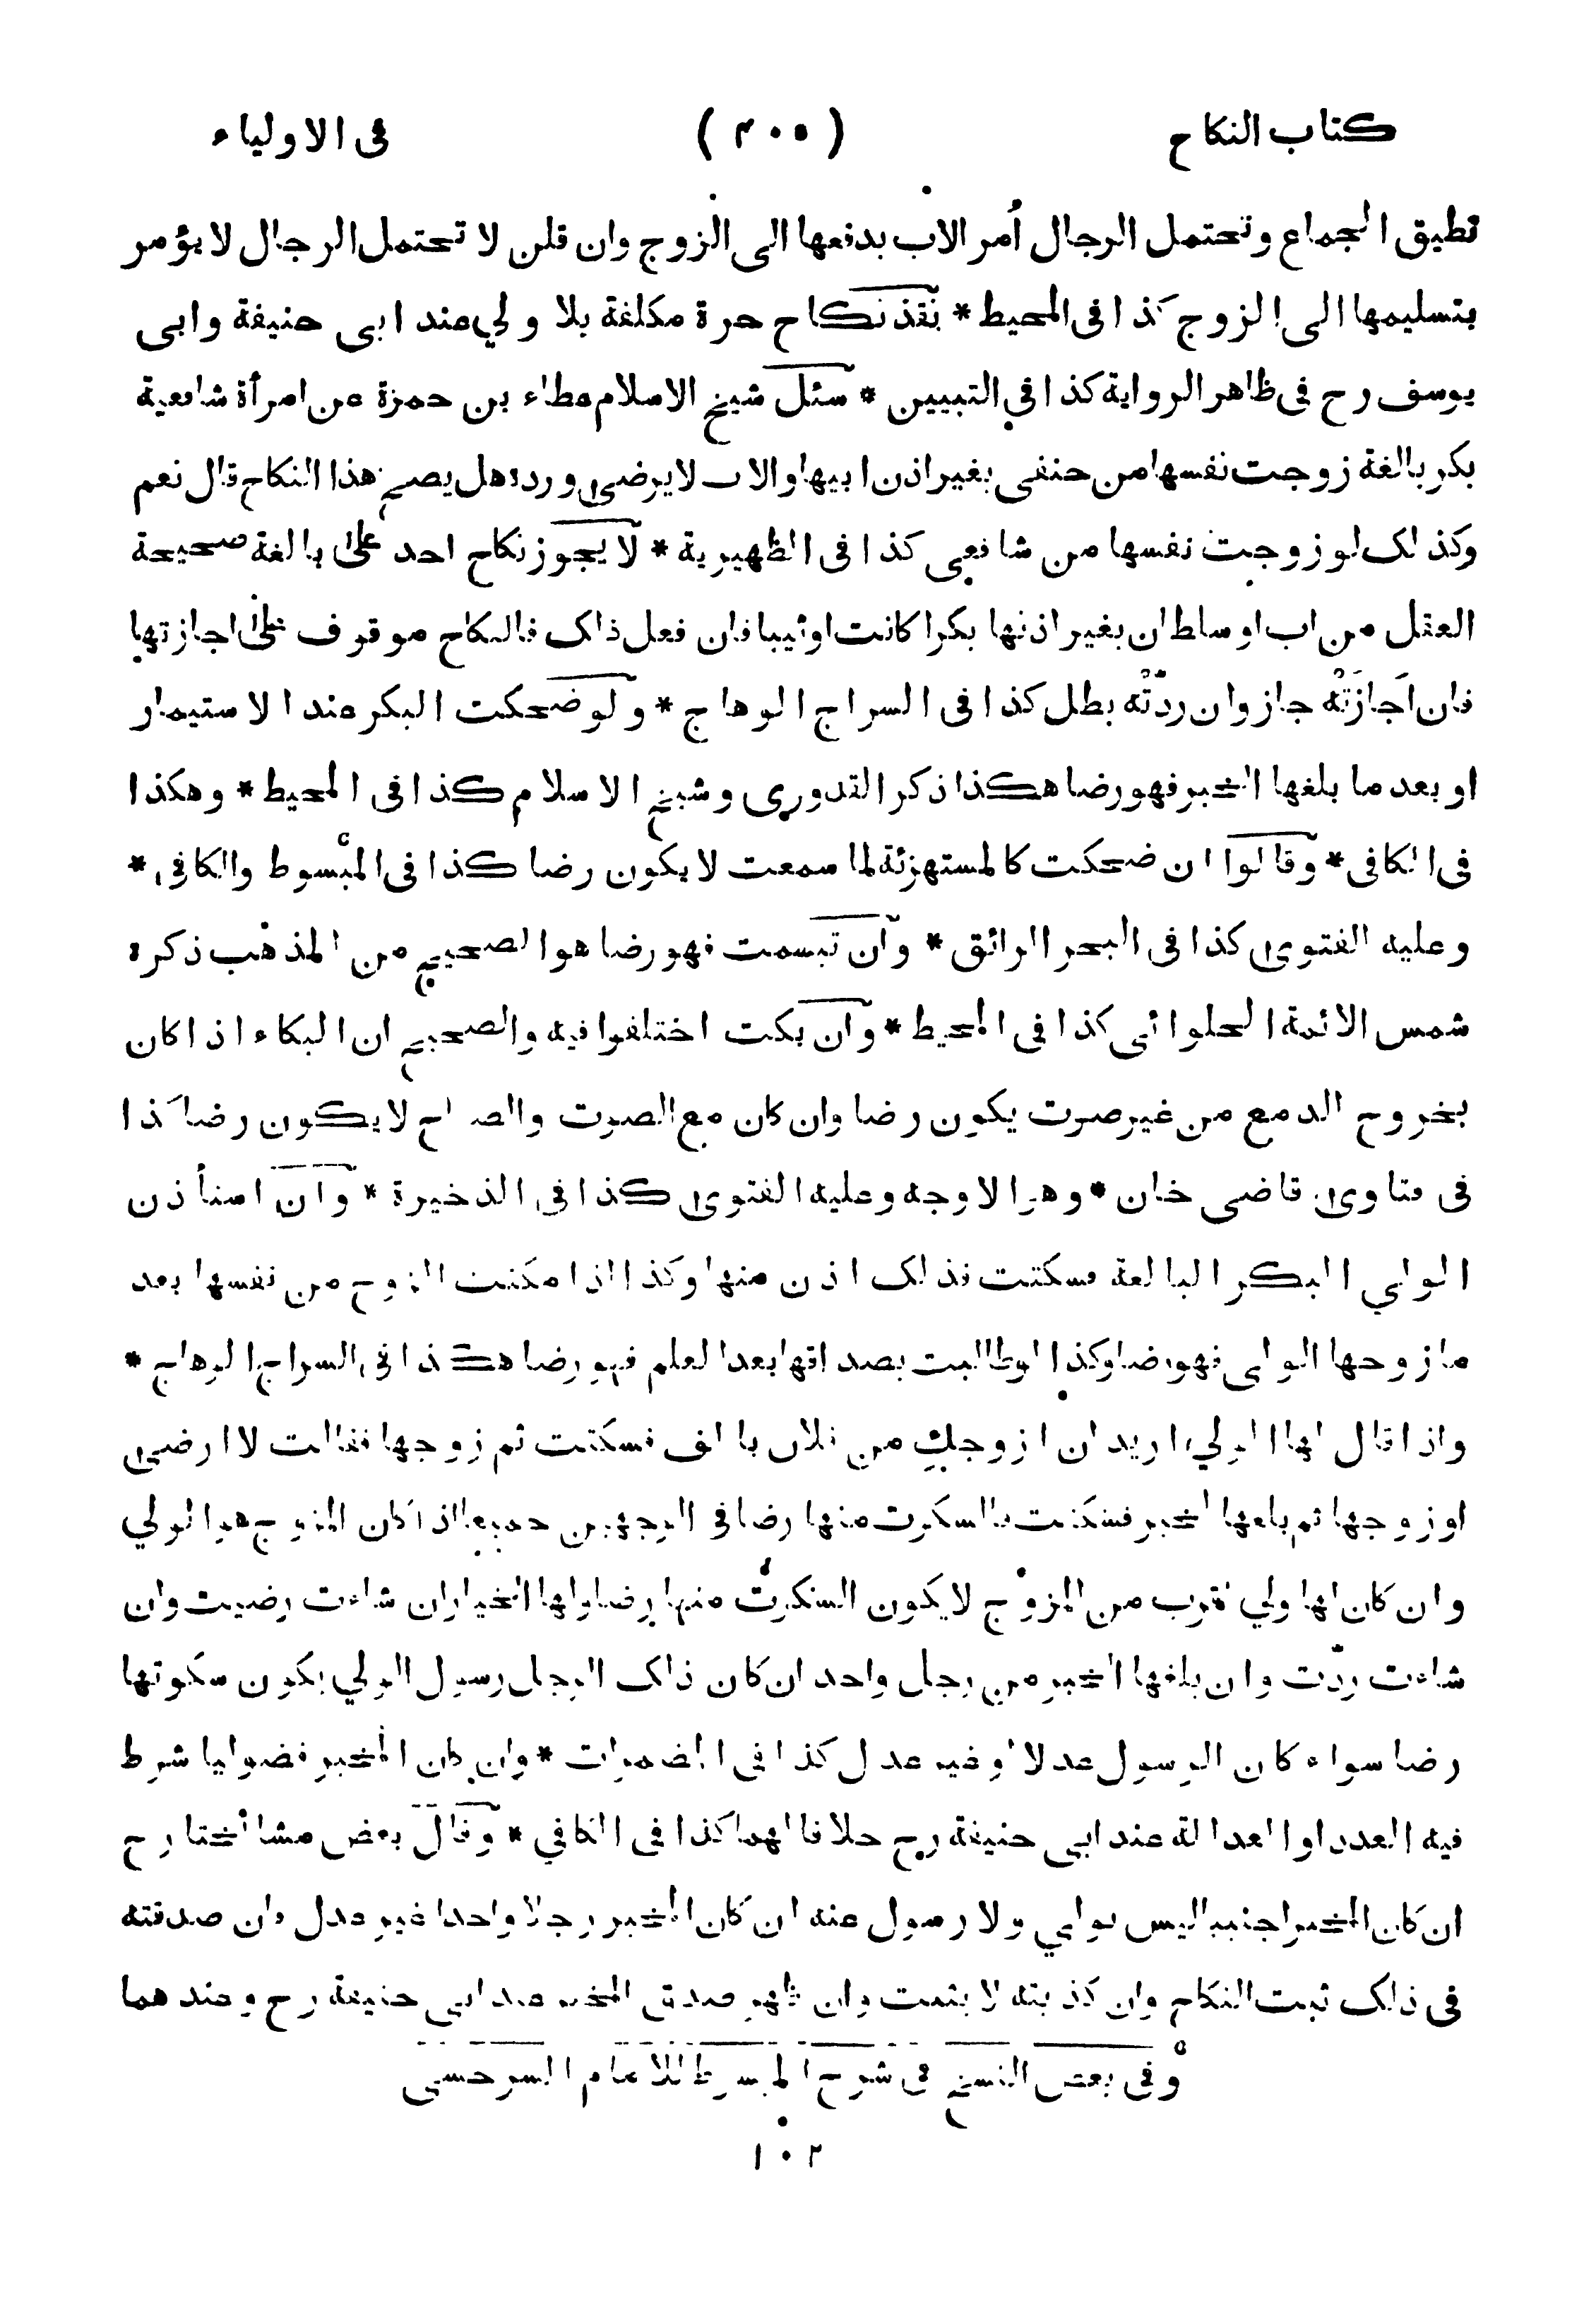 كتاب النكاح (٤٠٥) فى الاولياء
تطيق الجماع وتحتمل الرجال أمر الاب بدفعها الى الزوج وان قلن لا تحتمل الرجال لا يؤمر
بتسليمها الى الزوج كذا فى المحيط * نفذ نكاح حرة مكلفة بلا ولي عند ابى حنيفة وابى
يوسف رح فى ظاهر الرواية كذا في التبيين * سئل شيخ الاسلام عطاء بن حمزة عن امرأة شافعية
بكر بالغة زوجت نفسها من حنفى بغير اذن ابيها والاب لا يرضى ورده هل يصح هذا النكاح قال نعم
وكذلك لو زوجت نفسها من شافعي كذا فى الظهيرية * لا يجوز نكاح احد على بالغة صحيحة
العقل من اب او سلطان بغير اذنها بكرا كانت او ثيبا فان فعل ذلك فالنكاح موقوف على اجازتها
فان اَجازَتْه جاز وان ردّتْه بطل كذا فى السراج الوهاج * ولو ضحكت البكر عند الاستيمار
او بعد ما بلغها الخبر فهو رضا هكذا ذكر القدوري وشيخ الاسلام كذا فى المحيط * وهكذا
فى الكافى * وقالوا ان ضحكت كالمستهزئة لما سمعت لا يكون رضا كذا فى المبسوط والكافى *
وعليه الفتوى كذا فى البحر الرائق * وان تبسمت فهو رضا هو الصحيح من المذهب ذكره
شمس الائمة الحلوائى كذا فى المحيط * وان بكت اختلفوا فيه والصحيح ان البكاء اذا كان
بخروج الدمع من غير صوت يكون رضا وان كان مع الصوت والصياح لا يكون رضا كذا
فى فتاوى قاضى خان * وهو الاوجه وعليه الفتوى كذا فى الذخيرة * وان استأذن
الولي البكر البالغة فسكتت فذلك اذن منها وكذا اذا مكنت الزوج من نفسها بعد
ما زوجها الولى فهو رضا وكذا لو طالبت بصداقها بعد العلم فهو رضا هكذا فى السراج الوهاج *
واذا قال لها الولي اريد ان ازوجكِ من فلان بالف فسكتت ثم زوجها فقالت لا ارضى
او زوجها ثم بلغها الخبر فسكتت فالسكوت منها رضا فى الوجهين جميعا اذا كان المزوج هو الولي
وان كان لها ولي اقرب من المزوج لا يكون السكوت منها رضا ولها الخيار ان شاءت رضيت وان
شاءت ردّت وان بلغها الخبر من رجل واحد ان كان ذلك الرجل رسول الولي يكون سكوتها
رضا سواء كان الرسول عدلا او غير عدل كذا فى المضمرات * وان كان المخبر فضوليا شرط
فيه العدد او العدالة عند ابى حنيفة رح خلافا لهما كذا فى الكافي * وقال بعض مشائخنا رح
ان كان المخبر اجنبيا ليس بولي ولا رسول عنه ان كان المخبر رجلا واحدا غير عدل فان صدقته
فى ذلك ثبت النكاح وان كذبته لا يثبت وان ظهر صدق المخبر عند ابى حنيفة رح وعندهما
وفى بعض النسخ فى شرح المبسوط للامام السرخسى
١٠٢